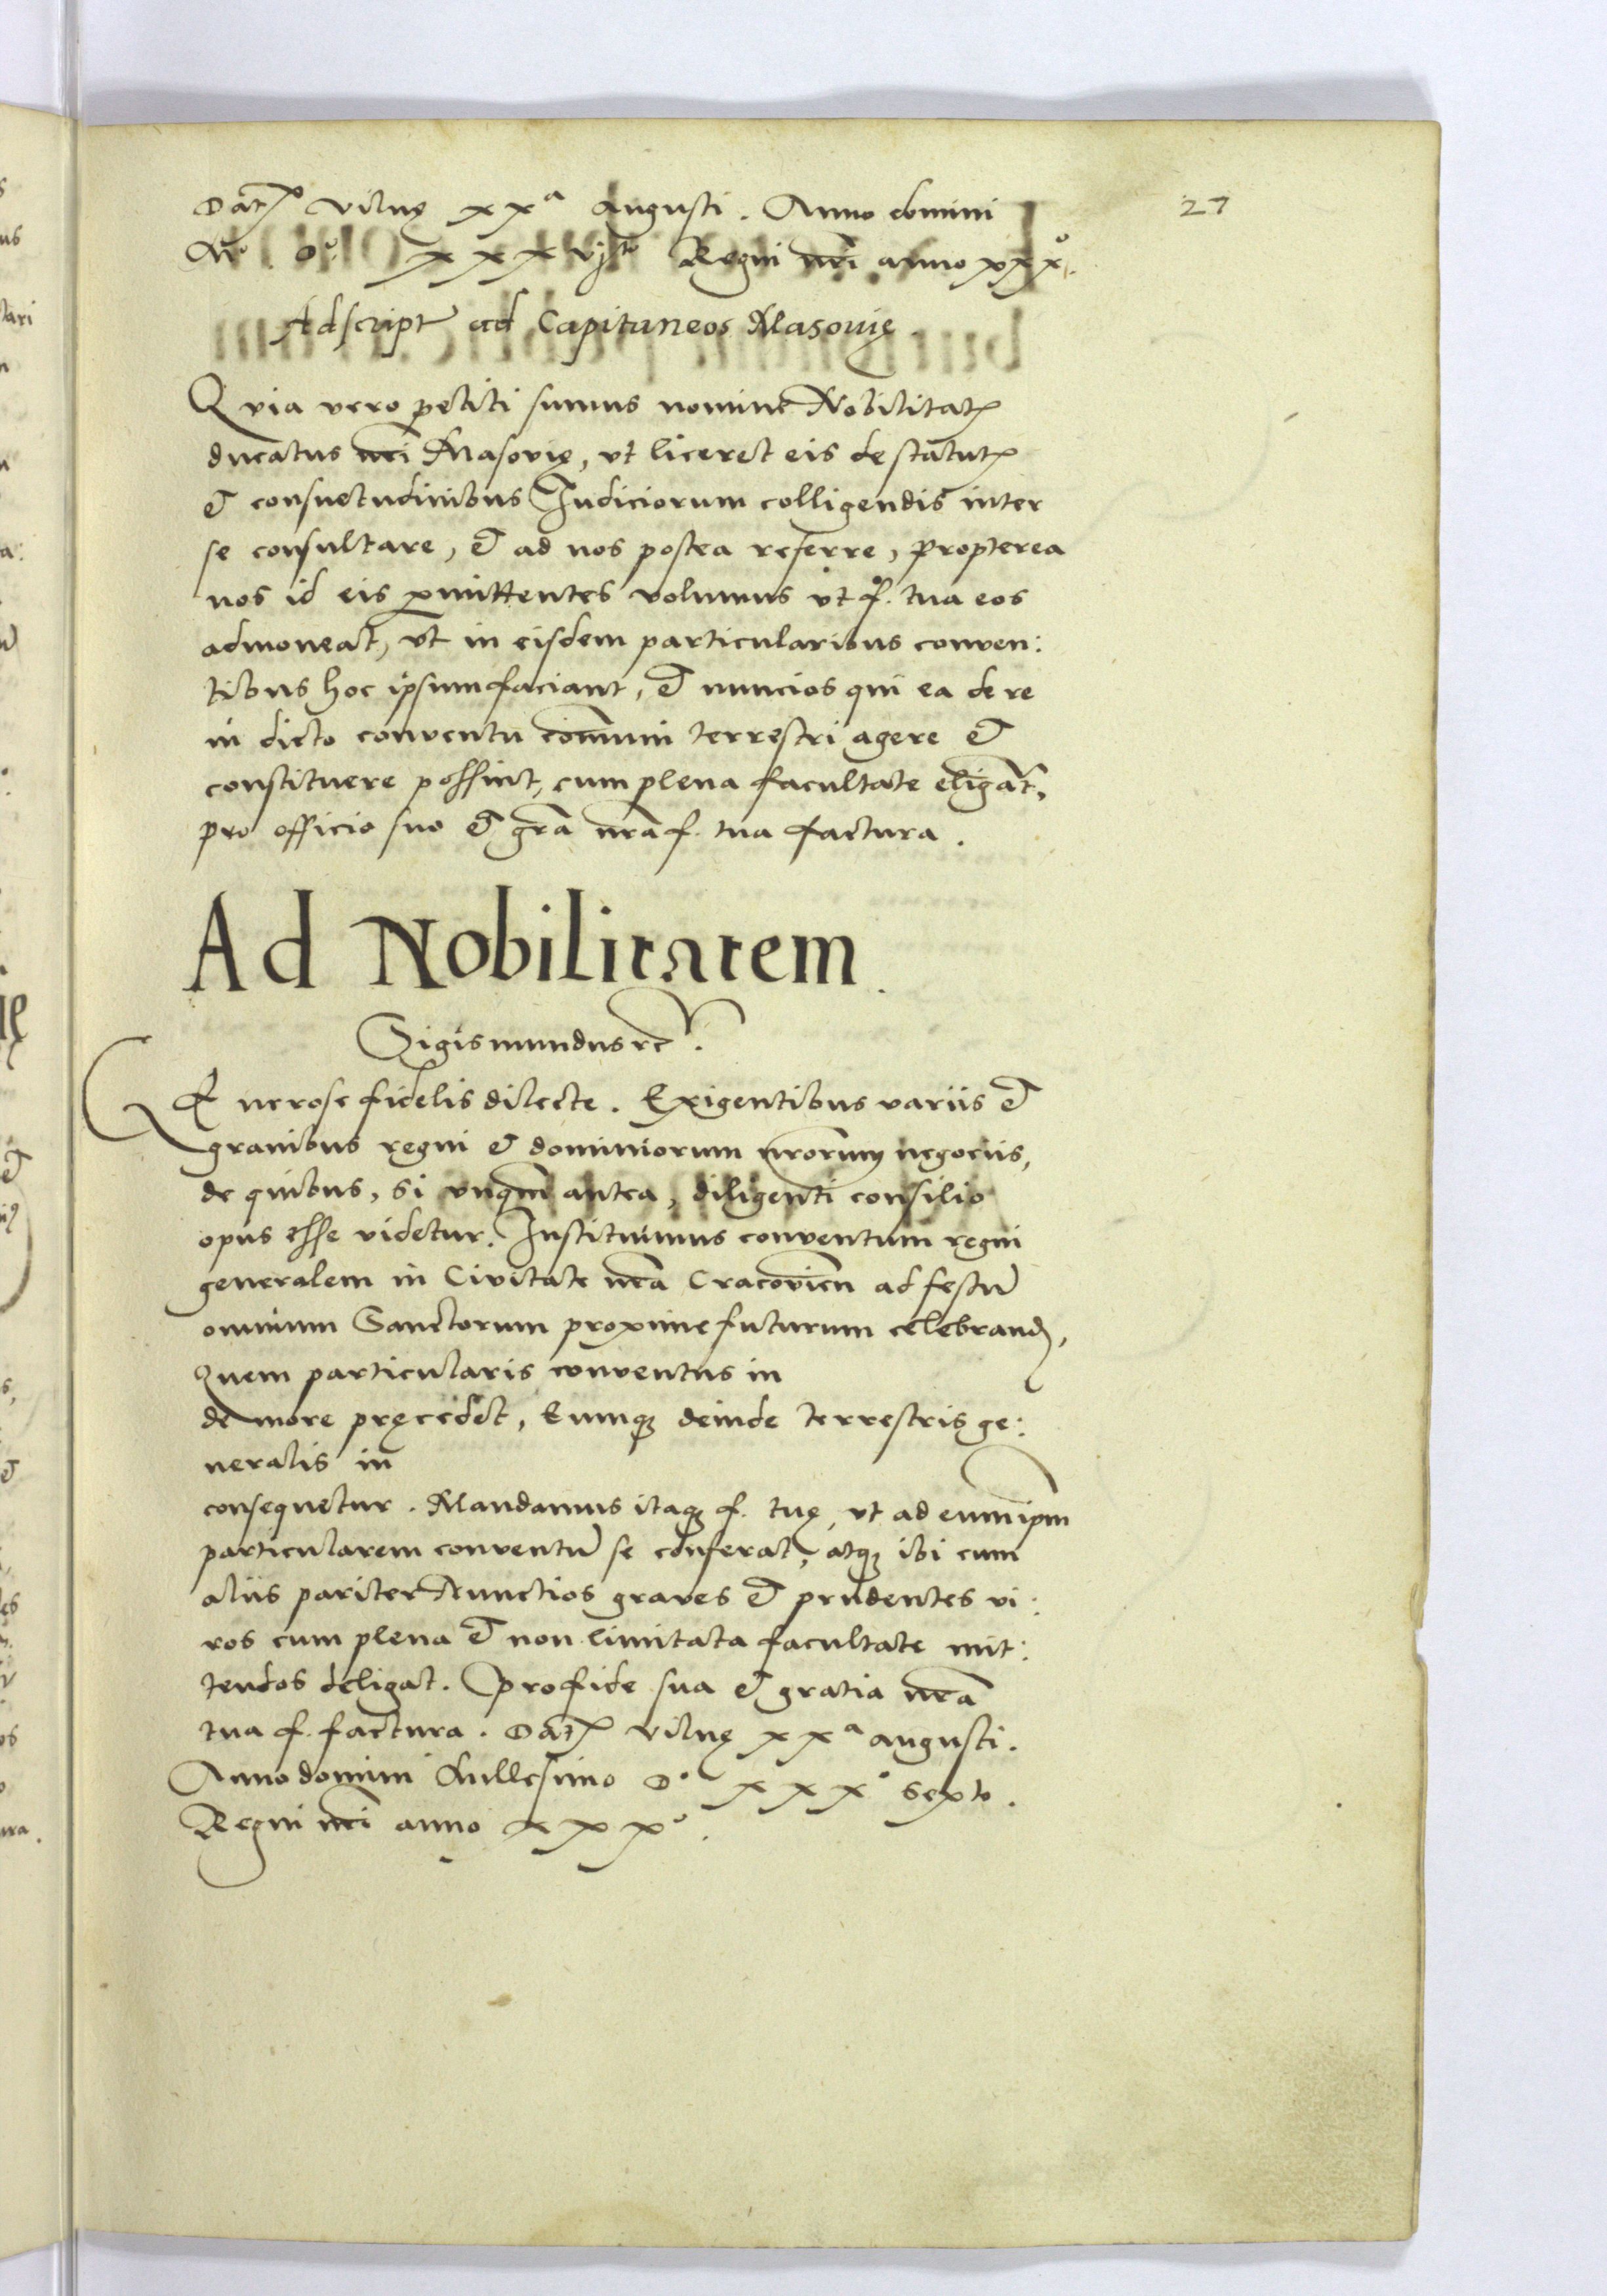 27
Dat Vilnę xxᵃ Augusti. Anno domini
Mº. Dº. xxxvjto Regni nri anno xxxº.
Adscript ad Capitaneos Masovię
Qvia vero petiti sumus nomine Nobilitat
ducatus nri Masovię, vt liceret eis de statut
et consuetudinibus Iudiciorum colligendis inter
se consultare, et ad nos postea referre, propterea
nos id eis pmittentes volumus vt f. tua eos
admoneat, vt in eisdem particularibus conven:
tibus hoc ipsum faciant, et nuncios qui ea de re
in dicto conventu comuni terrestri agere et
constituere possint, cum plena facultate eligat,
pro officio suo et gra nra f. tua factura.
Ad Nobilitatem.
Sigismundus rc.
Generose fidelis dilecte. Exigentibus variis et
gravibus regni et dominiorum nrorum negociis,
de quibus, si vnqm antea, diligenti consilio
opus esse videtur. Instituimus conventum regni
generalem in Civitate nra Cracovien ad festu
omnium Sanctorum proxime futurum celebrand,
Quem particularis conventus in
de more pręcedet, Eumq deinde terrestris ge:
neralis in
consequetur. Mandamus itaq f. tuę, vt ad eum ipm
particularem conventu se conferat, atq ibi cum
aliis pariter Nunctios graves et prudentes vi:
ros cum plena et non limitata facultate mit:
tendos deligat. Pro fide sua et gratia nra
tua f. factura. Dat Vilnę xxᵃ augusti.
Anno domini Millesimo Dº xxxº sexto.
Regni nri anno xxxº.